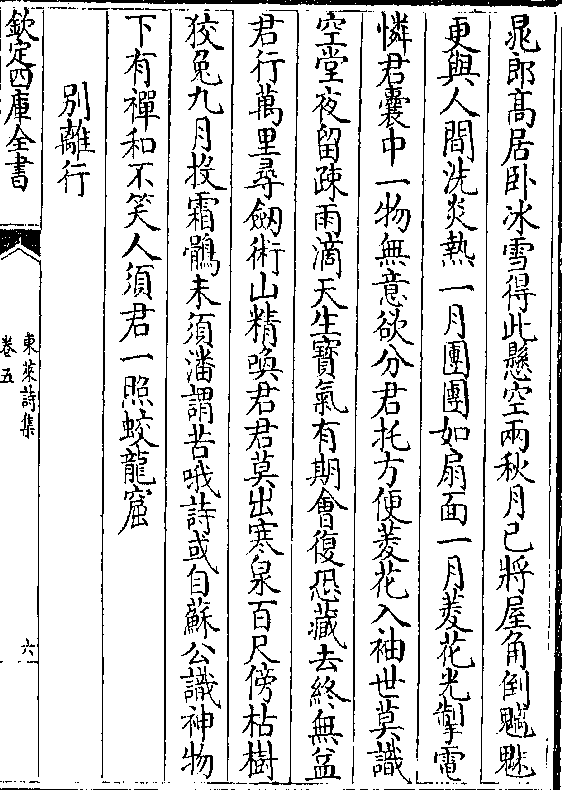 晁郎高居卧冰雪得此懸空兩秋月已將屋角倒魑魅
更與人間洗炎熱一月團團如扇面一月菱花光掣電
憐君囊中一物無意欲分君托方便菱花入袖世莫識
空堂夜留疎雨滴天生寶氣有期會復恐藏去終無益
君行萬里尋劒術山精喚君君莫出寒泉百尺傍枯樹
狡兔九月投霜鶻未須潘謂苦哦詩或自蘇公識神物
下有禪和不笑人須君一照蛟龍窟
別離行
欽定四庫全書
東萊詩集
卷五
六